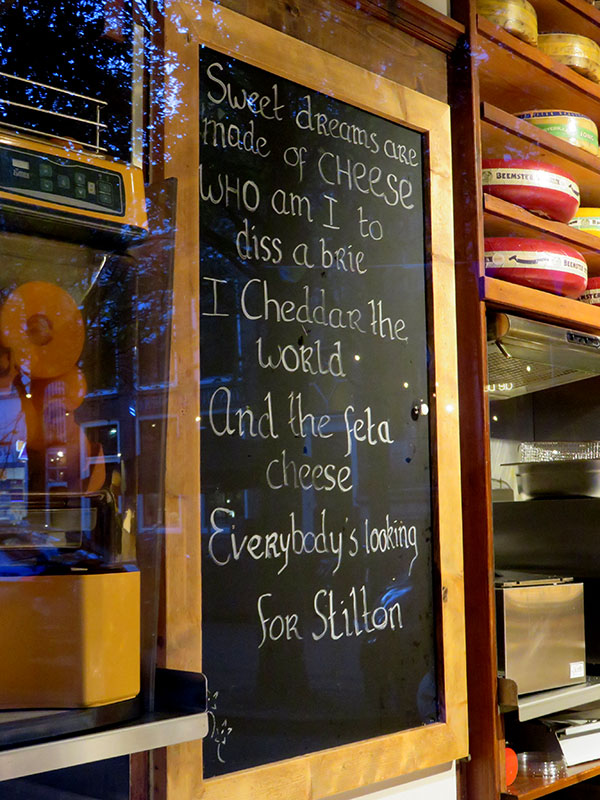 Sweet dreams are
made of CHEESE
WHO am I to
diss a brie
I Cheddar the
world
And the feta
cheese
Everybody's looking
for Stilton
BEEMSTER
BEEMSTER